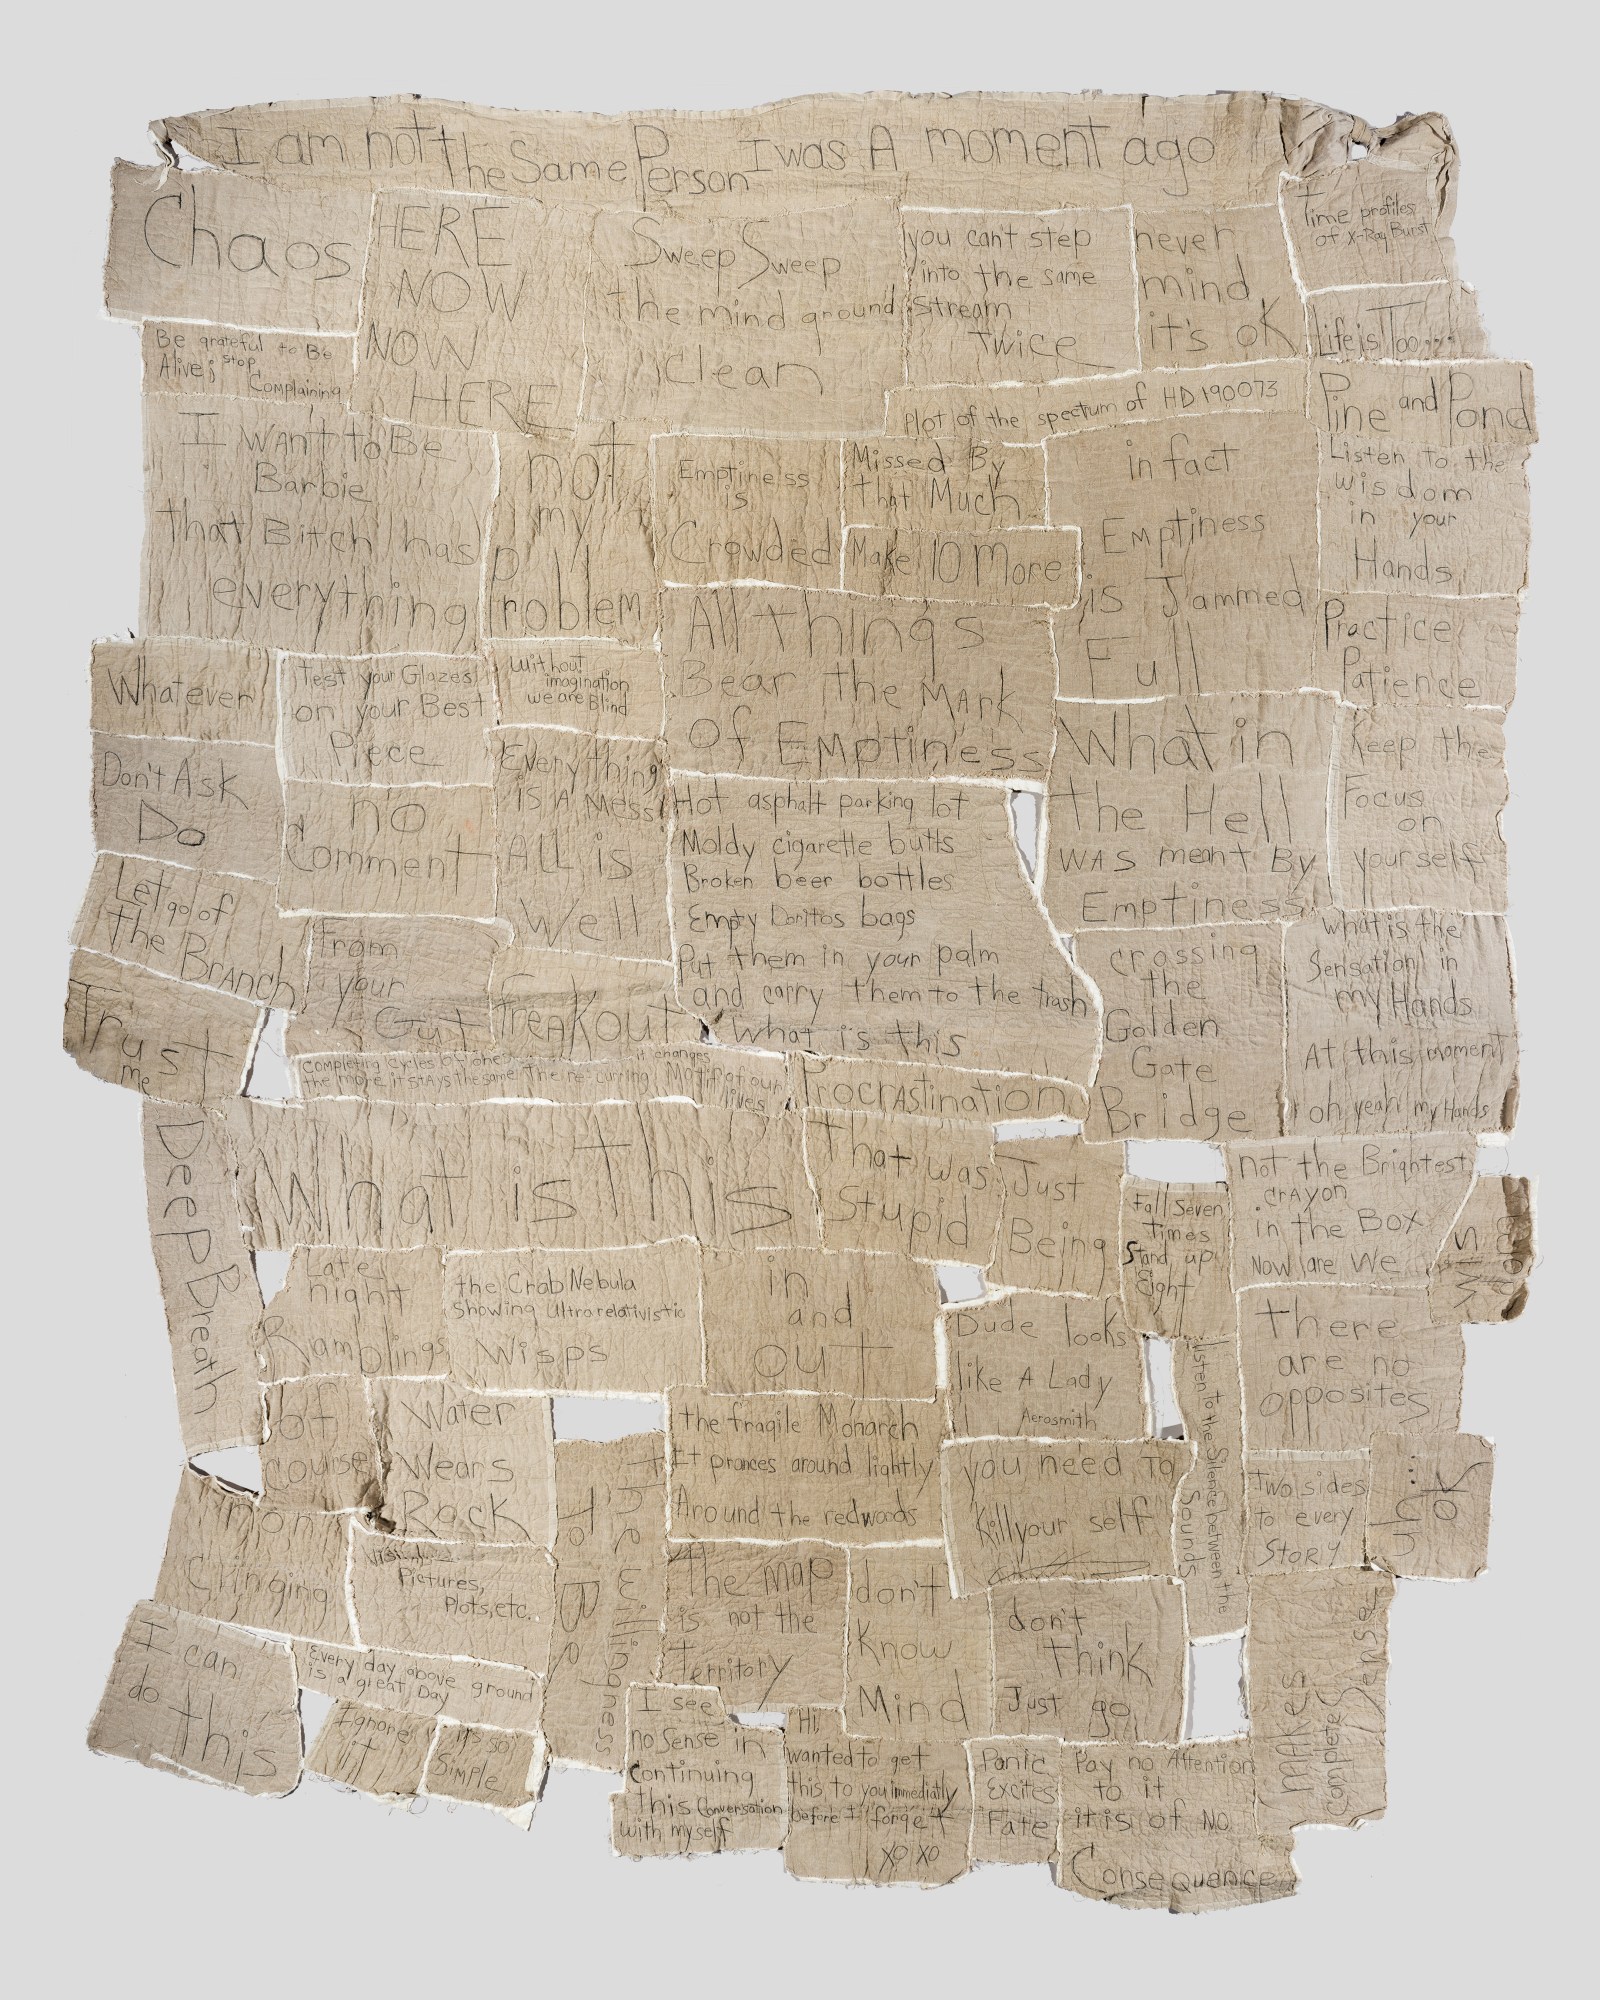 I am not the Same Person I was A moment ago
Chaos
HERE
NOW
NOW
HERE
Sweep Sweep
the mind ground
clean
you can't step
into the same
stream
Twice
never
mind
it's ok
Time profiles
of X-Ray Burst
Life is Too....
Be grateful to Be
Alive; stop
Complaining
Plot of the spectum of HD190073
Pine and Pond
I WANT to Be
Barbie
that Bitch has
everything
not
my
problem
Emptiness
is
Crowded
Missed By
that Much
Make 10 More
in fact
Emptiness
is Jammed
Full
Listen to the
wisdom
in your
Hands
Practice
Patience
All things
Bear the MArk
of Emptiness
Whatever
Test your Glazes
on your Best
Piece
Without
imagination
we are Blind
Everything
is A Mess
ALL is
Well
What in
the Hell
WAS meant By
Emptiness
Keep the
Focus
on
yourself
Don't Ask
Do
no
Comment
Hot asphalt parking lot
Moldy cigarette butts
Broken beer bottles
Empty Doritos bags
Put them in your palm
and carry them to the trash
What is this
Let go of
the BrAnch
From
your
Gut
freakout
crossing
the
Golden
Gate
Bridge
what is the
Sensation in
my Hands
At this moment
oh yeah my Hands
Trust
me
Completing Cycles of ones
it changes
the more it stAys the same The re-curring Motif of our
lives
ProcrAstination
Deep Breath
What is This
That was
Stupid
Just
Being
Fall Seven
Times
Stand up
Eight
not the Brightest
crAyon
in the Box
Now are We
Late
night
Ramblings
the Crab Nebula
Showing Ultra relativistic
Wisps
in
and
out
Dude looks
like A Lady
Aerosmith
there
are no
opposites
of
course
Water
Wears
Rock
the fragile Monarch
It prances around lightly
Around the redwoods
you need to
Kill your self
Listen to the Silence between the
Sounds
Two sides
to every
STory
uh...
OK
mon
Clinging
Pictures,
Plots, etc.
The Willingness
To Be
The map
is not the
Territory
don't
Know
Mind
don't
think
Just go
MAKes
Complete
Sense
I can
do this
Every day above ground
is a great Day
Ignore
it
its so
Simple
I see
no Sense in
Continuing
this Conversation
with myself
Hi,
wanted to get
this to you immediatly
before I forget
XO XO
Panic
Excites
Fate
Pay no Attention
to it
it is of No
Consequance